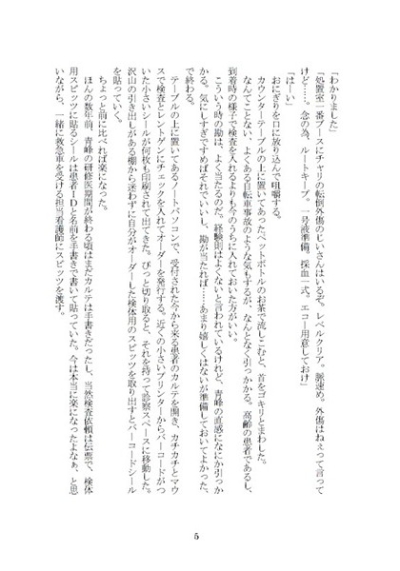 「わかりました」
「処置室一番ブースにチャリの転倒外傷のじいさんはいるぞ。レベルクリア。脈速め。外傷はねぇって言って
けど……。念の為、ルートキープ。一号液準備。採血一式。エコー用意しておけ」
「はーい」
おにぎりを口に放り込んで咀嚼する。
カウンターテーブルの上に置いてあったペットボトルのお茶で流しこむと、首をゴキリとまわした。
なんてことない、よくある自転車事故のような気もするが、なんとなく引っかかる。高齢の患者であるし、
到着時の様子で検査を入れるよりも今のうちに入れておいた方がいい。
こういう時の勘は、よく当たるのだ。経験則はよくないと言われているけれど、青峰の直感になにか引っか
かる。気にしすぎですめばそれでいいし、勘が当たれば……あまり嬉しくはないが準備しておいてよかった、
で終わる。
テーブルの上に置いてあるノートパソコンで、受付された今から来る患者のカルテを開き、カチカチとマウ
スで検査とレントゲンにチェックを入れてオーダーを発行する。近くの小さいプリンターからバーコードがつ
いた小さいシールが何枚も印刷されて出てきた。ぴっと切り取ると、それを持って診察スペースに移動した。
沢山の引き出しがある棚から迷わずに自分がオーダーした検体用のスピッツを取り出すとバーコードシール
を貼っていく。
ちょっと前に比べれば楽になった。
ほんの数年前、青峰の研修医期間が終わる頃はまだカルテは手書きだったし、当然検査依頼は伝票で、検体
用スピッツに貼るシールは患者ＩＤと名前を手書きで書いて貼っていた。今は本当に楽になったよなぁ、と思
いながら、一緒に救急車を受ける担当看護師にスピッツを渡す。
5